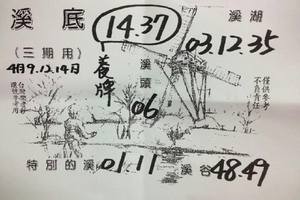 溪底
(三期用)
4月9.12.14日
14.37
養牌
溪頭
06
溪湖
03.12.35
僅供參考
不負責任
特別的溪 01.11
溪谷 48.49